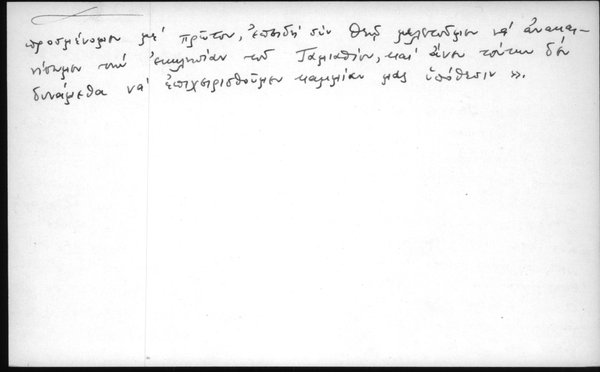 προσμένομεν μὲ πρῶτον, ἐπειδὴ σὺν Θεῷ μελετοῦμεν νὰ ἀνακαι-
νήσωμεν τὴν ἐκκλησίαν τοῦ Ταμιαθίου, καὶ ἄνευ τούτων δὲν
δυνάμεθα νὰ ἐπιχειρισθοῦμεν καμμίαν μας ὑπόθεσιν».